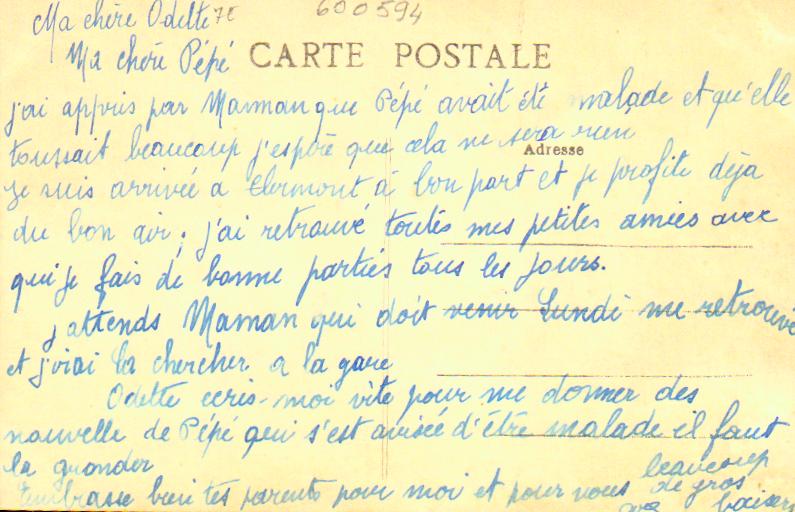 Ma chère Odette 7E 600594
Ma chère Pépé CARTE POSTALE
j'ai appris par Maman que Pépé avait été malade et qu'elle
toussait beaucoup j'espère que cela ne sera rien
Adresse
Je suis arrivée a Clermont à bon part et je profite déja
du bon air ; j'ai retrouvé toutes mes petites amies avec
qui je fais de bonne parties tous les jours.
J'attends Maman qui doit venir Lundi me retrouver
et j'irai la chercher a la gare
Odette ecris-moi vite pour me donner des
nouvelle de Pépé qui s'est avisée d'être malade il faut
la gronder
Embrasse bien tes parents pour moi et pour vous beaucoup
de gros
baisers